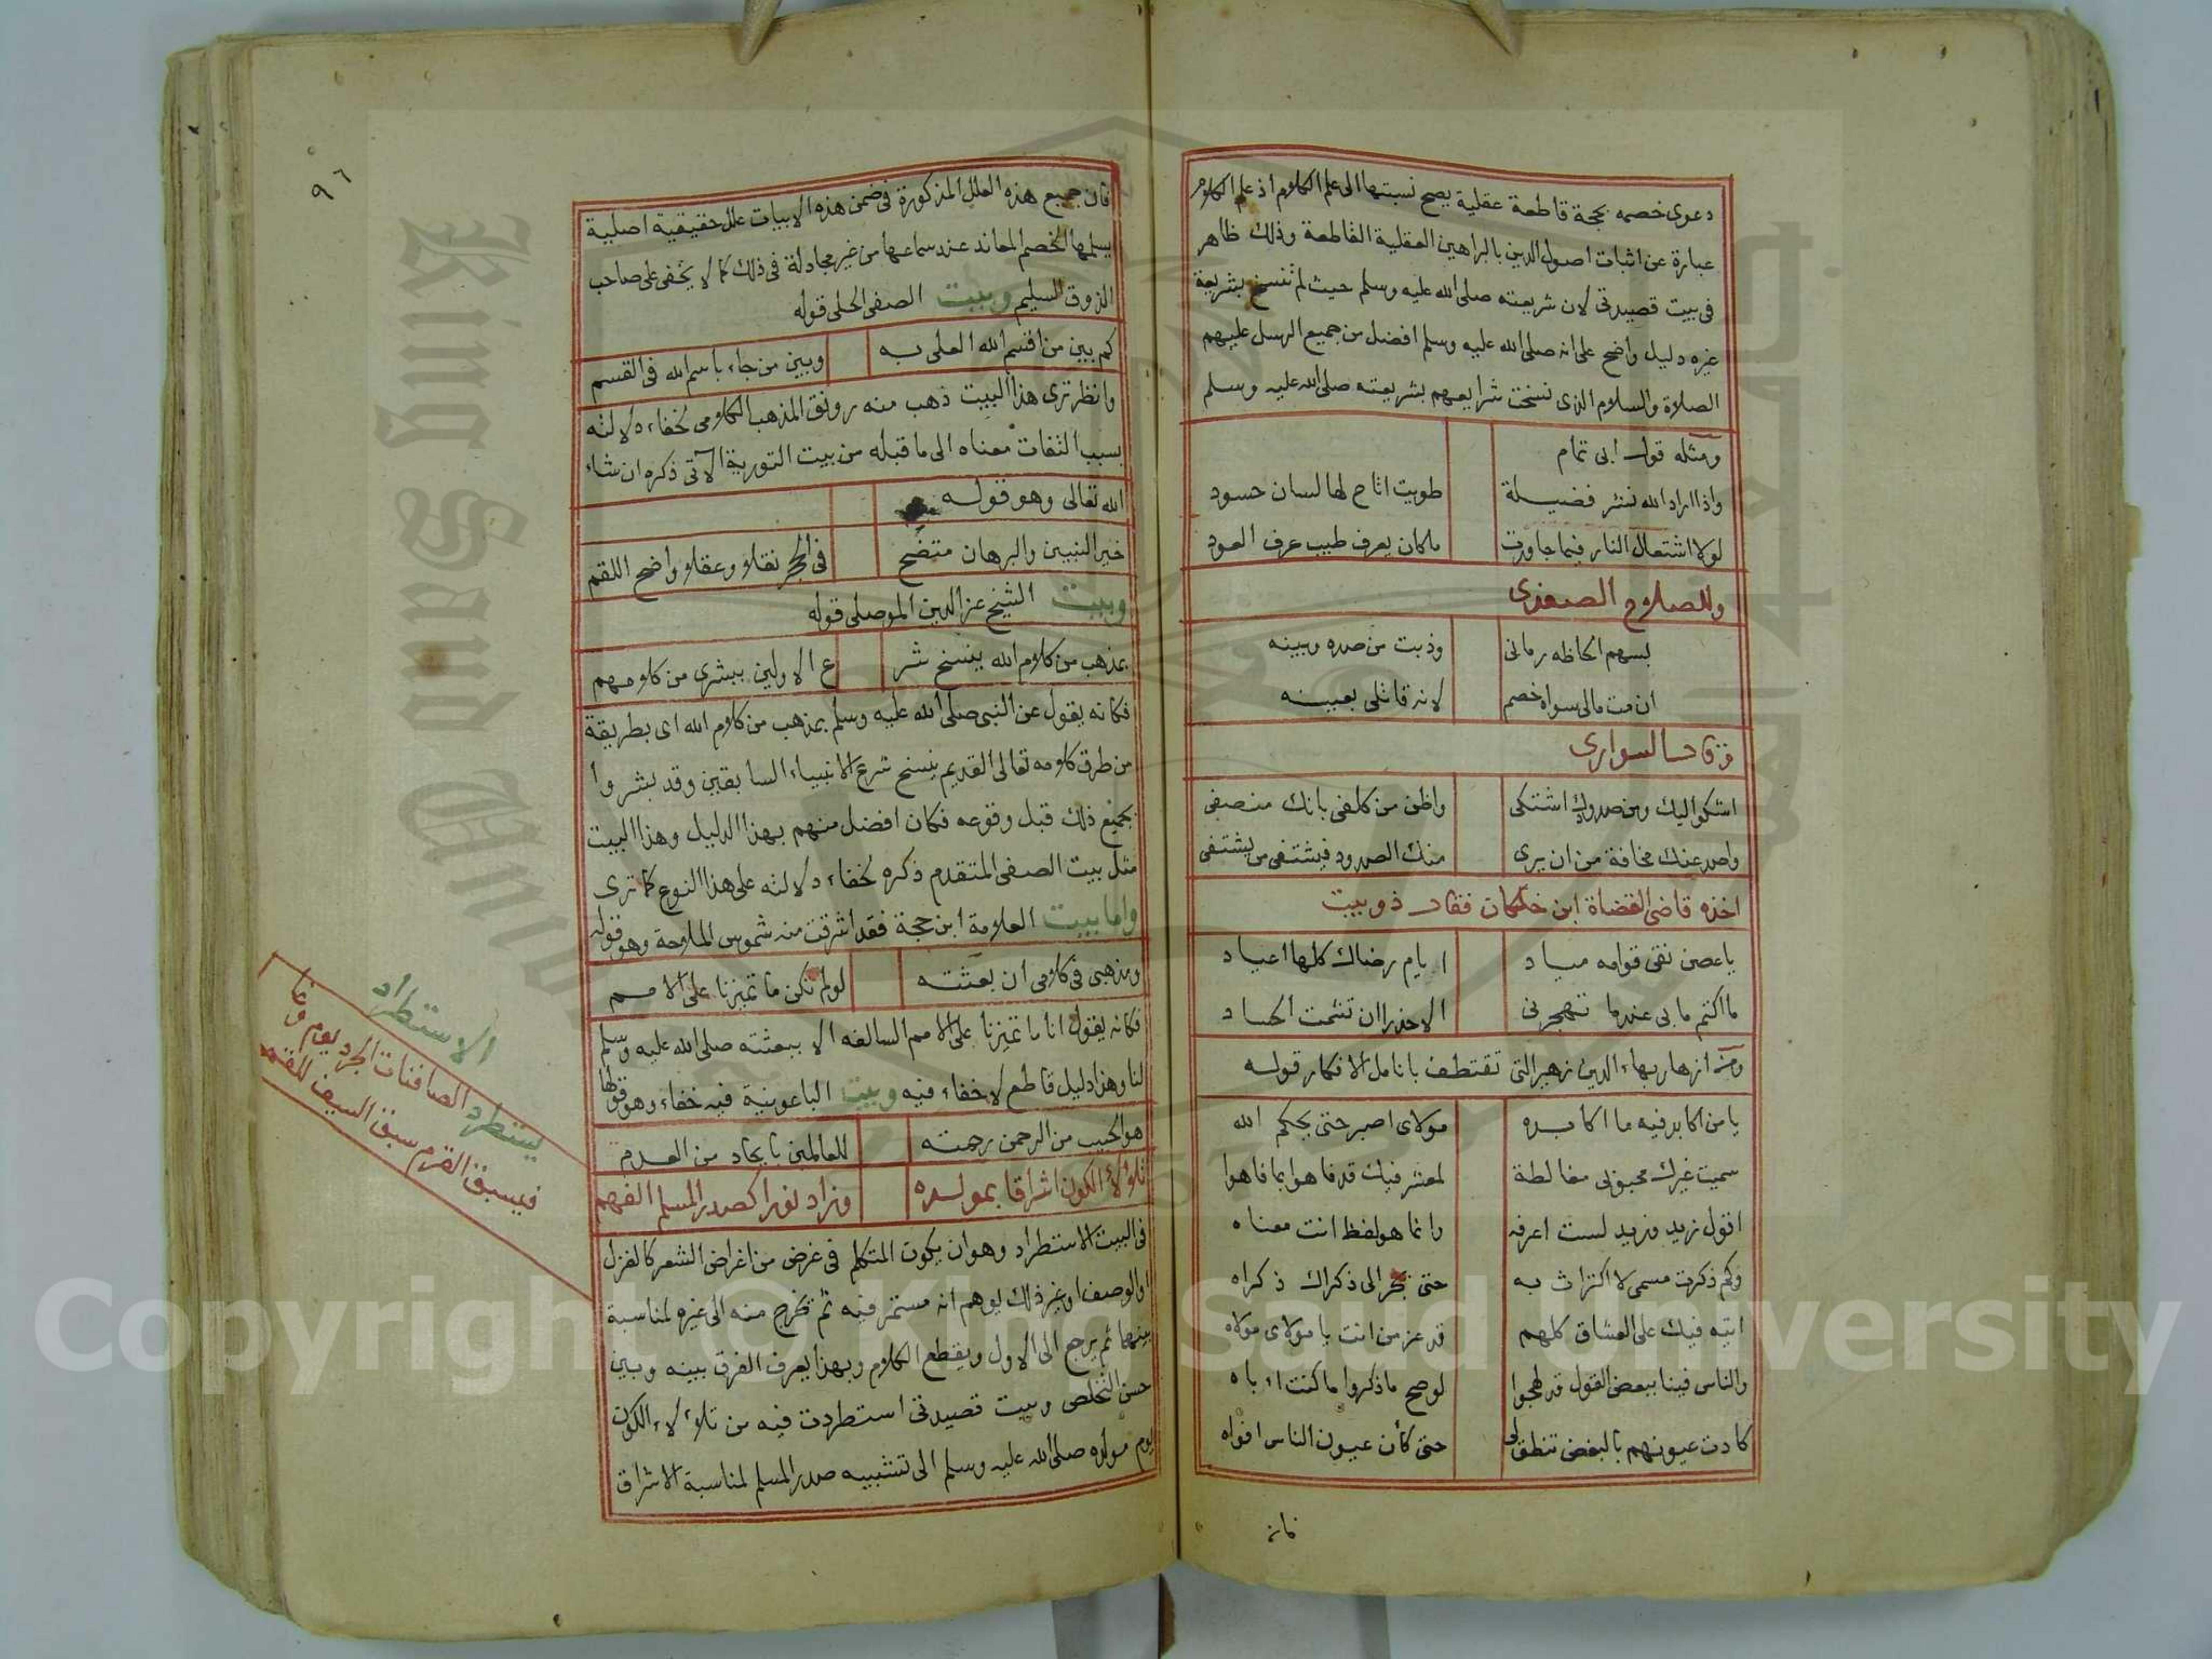 دعوى خصمه بحجة قاطعة عقلية يصح نسبتها الى علم الكلام اذ علم الكلام
عبارة عن اثبات اصول الدين بالبراهين العقلية القاطعة وذلك ظاهر
فى بيت قصيدتى لان شريعته صلى الله عليه وسلم حيث لم تنسخ بشريعة
غيره دليل واضح على انه صلى الله عليه وسلم افضل من جميع الرسل عليهم
الصلاة والسلام الذى نسخت شرايعهم بشريعته صلى الله عليه وسلم
ومثله قول ابى تمام
واذا اراد الله نشر فضيلة طويت اتاح لها لسان حسود
لولا اشتعال النار فيما جاورت ماكان يعرف طيب عرف العود
وللصلاح الصفدى
بسهم الحاظه رمانى وذبت من صده وبينه
ان مت مالى سواه خصم لانه قاتلى بعينه
وقال السوارى
اشكو اليك ومن صدودك اشتكى واظن من كلفى بانك منصفى
واصد عنك مخافة من ان يرى منك الصدود فيشتفى من يشتفى
اخذه قاضى القضاة ابن خلكان فقال ذو بيت
يا غصن نقى قوامه مياد ايام رضاك كلها اعياد
ما اكتم ما بى عندما تهجرنى الا حذرا ان تشمت الحساد
ومن ازهار بهاء الدين زهير التى تقتطف بانامل الافكار قوله
يا من اكابد فيه ما اكابده مولاى اصبر حتى يحكم الله
سميت غيرك محبوبى مغالطة لمعشر فيك قد فاهوا بما فاهوا
اقول زيد وزيد لست اعرفه وانما هو لفظ انت معناه
وكم ذكرت مسمى لا اكتراث به حتى يجر الى ذكراك ذكراه
اتيه فيك على العشاق كلهم قد عز من انت يا مولاى مولاه
والناس فينا ببعض القول قد لهجوا لو صح ما ذكروا ما كنت اباه
كادت عيونهم بالبغض تنطق لى حتى كأن عيون الناس افواه
فان
٩٦
فان جميع هذه العلل المذكورة فى ضمن هذه الابيات علل حقيقية اصلية
يسلمها الخصم المعاند عند سماعها من غير مجادلة فى ذلك كما لا يخفى على صاحب
الذوق السليم وبيت الصفى الحلى قوله
كم بين من اقسم الله العلى به وبين من جاء باسم الله فى القسم
وانظر ترى هذا البيت ذهب منه رونق المذهب الكلامى لخفاء دلالته
بسبب التفات معناه الى ما قبله من بيت التورية الآتى ذكره ان شاء
الله تعالى وهو قوله
خير النبيين والبرهان متضح فى الحجر نقلا وعقلا واضح اللقم
وبيت الشيخ عز الدين الموصلى قوله
بمذهب من كلام الله ينسخ شر ع الاولين ببشرى من كلامهم
فكانه يقول عن النبى صلى الله عليه وسلم بمذهب من كلام الله اى بطريقة
من طرق كلامه تعالى القديم ينسخ شرع الانبياء السابقين وقد بشروا
بجميع ذلك قبل وقوعه فكان افضل منهم بهذا الدليل وهذا البيت
مثل بيت الصفى المتقدم ذكره لخفاء دلالته على هذا النوع كما ترى
واما بيت العلامة ابن حجة فقد اشرقت منه شموس الملاحة وهو قوله
ومذهبى فى كلامى ان بعثته لو لم تكن ما تميزنا على الامم
فكانه يقول انا ما تميزنا على الامم السالفه الا ببعثته صلى الله عليه وسلم
لنا وهذا دليل قاطع لا خفاء فيه وبيت الباعونية فيه خفاء وهو قولها
هو الحبيب من الرحمن رحمته للعالمين بايجاد من العدم
تلألأ الكون اشراقا بمولده وزاد نورا كصدر المسلم الفهم
فى البيت الاستطراد وهو ان يكون المتكلم فى غرض من اغراض الشعر كالغزل
او الوصف او غير ذلك يوهم انه مستمر فيه ثم يخرج منه الى غيره لمناسبة
بينهما ثم يرجع الى الاول ويقطع الكلام وبهذا يعرف الفرق بينه وبين
حسن التخلص وبيت قصيدتى استطردت فيه من تلألأ الكون
يوم مولده صلى الله عليه وسلم الى تشبيه صدر المسلم لمناسبة الاشراق
الاستطراد
يستطرد الصافنات الجرد يوم وغا
فيسبق القرم سبق السيف للقمم
Copyright © King Saud University